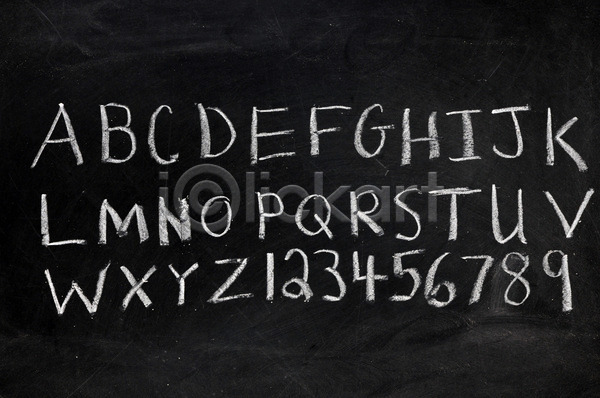 ABCDEFGHIJK
LMNOPQRSTUV
WXYZ123456789
iclickart